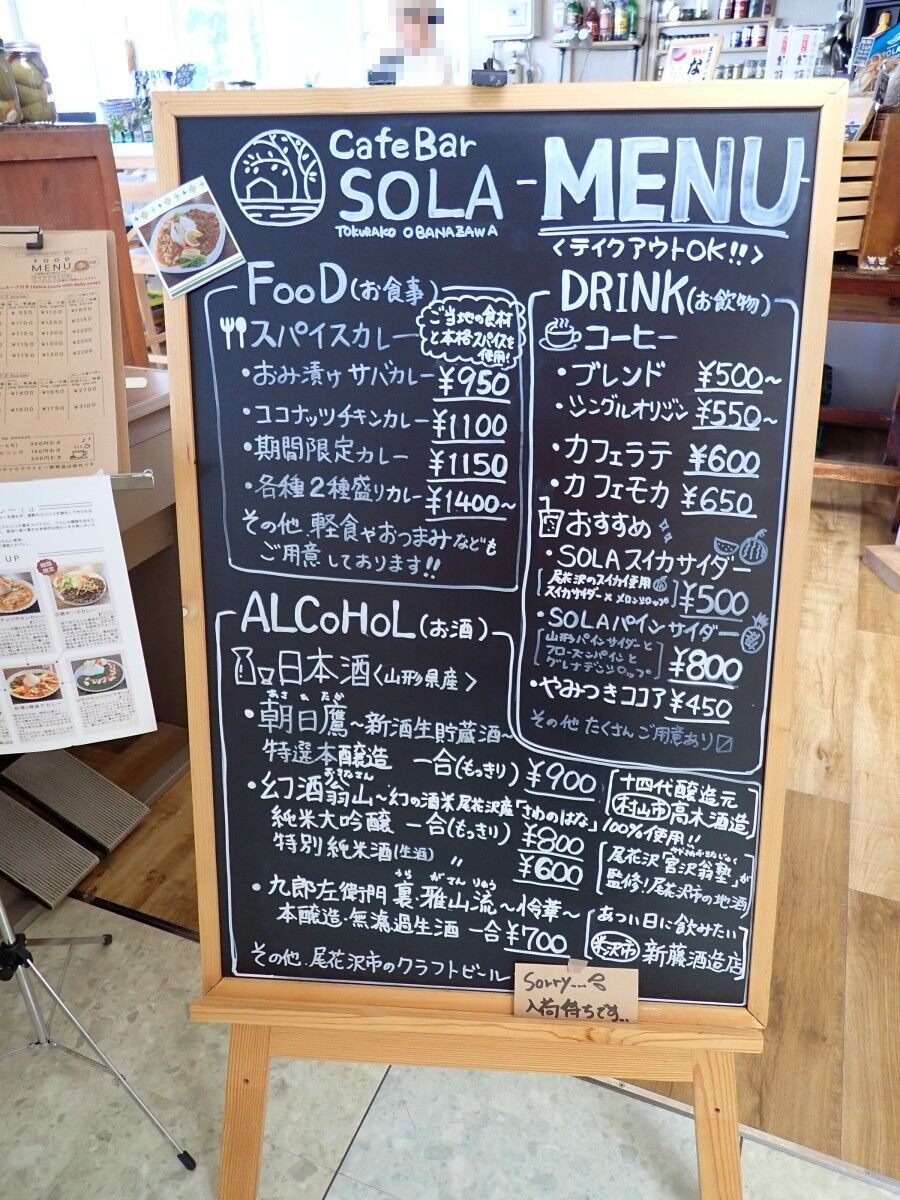 Cafe Bar
SOLA
TOKURAKO OBANAZAWA
-MENU-
<テイクアウトOK!!>
FOOD(お食事)
スパイスカレー
ご当地の食材
と本格スパイスを
使用!
・おみ漬けサバカレー ¥950
・ココナッツチキンカレー ¥1100
・期間限定カレー ¥1150
・各種2種盛りカレー ¥1400~
その他、軽食やおつまみなども
ご用意しております!!
DRINK(お飲物)
コーヒー
・ブレンド ¥500~
・シングルオリジン ¥550~
・カフェラテ ¥600
・カフェモカ ¥650
おすすめ
・SOLAスイカサイダー
[尾花沢のスイカ使用
スイカサイダー×メロンシロップ] ¥500
・SOLAパインサイダー
[山形パインサイダーと
フローズンパインと
グレナデンシロップ] ¥800
・やみつきココア ¥450
その他たくさんご用意あり
ALCOHOL(お酒)
日本酒<山形県産>
あさひたか
・朝日鷹~新酒生貯蔵酒~
特選本醸造 一合(もっきり) ¥900
[十四代醸造元
村山市 高木酒造]
おきなさん
・幻酒翁山~幻の酒米尾花沢産「さわのはな」100%使用!!
純米大吟醸 一合(もっきり) ¥800
特別純米酒(生酒) 〃 ¥600
[尾花沢「宮沢翁塾」が
監修!尾花沢市の地酒]
うら がさんりゅう
・九郎左衛門 裏・雅山流~怜華~
本醸造・無濾過生酒 一合 ¥700
[あつい日に飲みたい
米沢市 新藤酒造店]
その他、尾花沢市のクラフトビール
Sorry....
入荷待ちです...
FOOD
MENU
UP
期間
限定